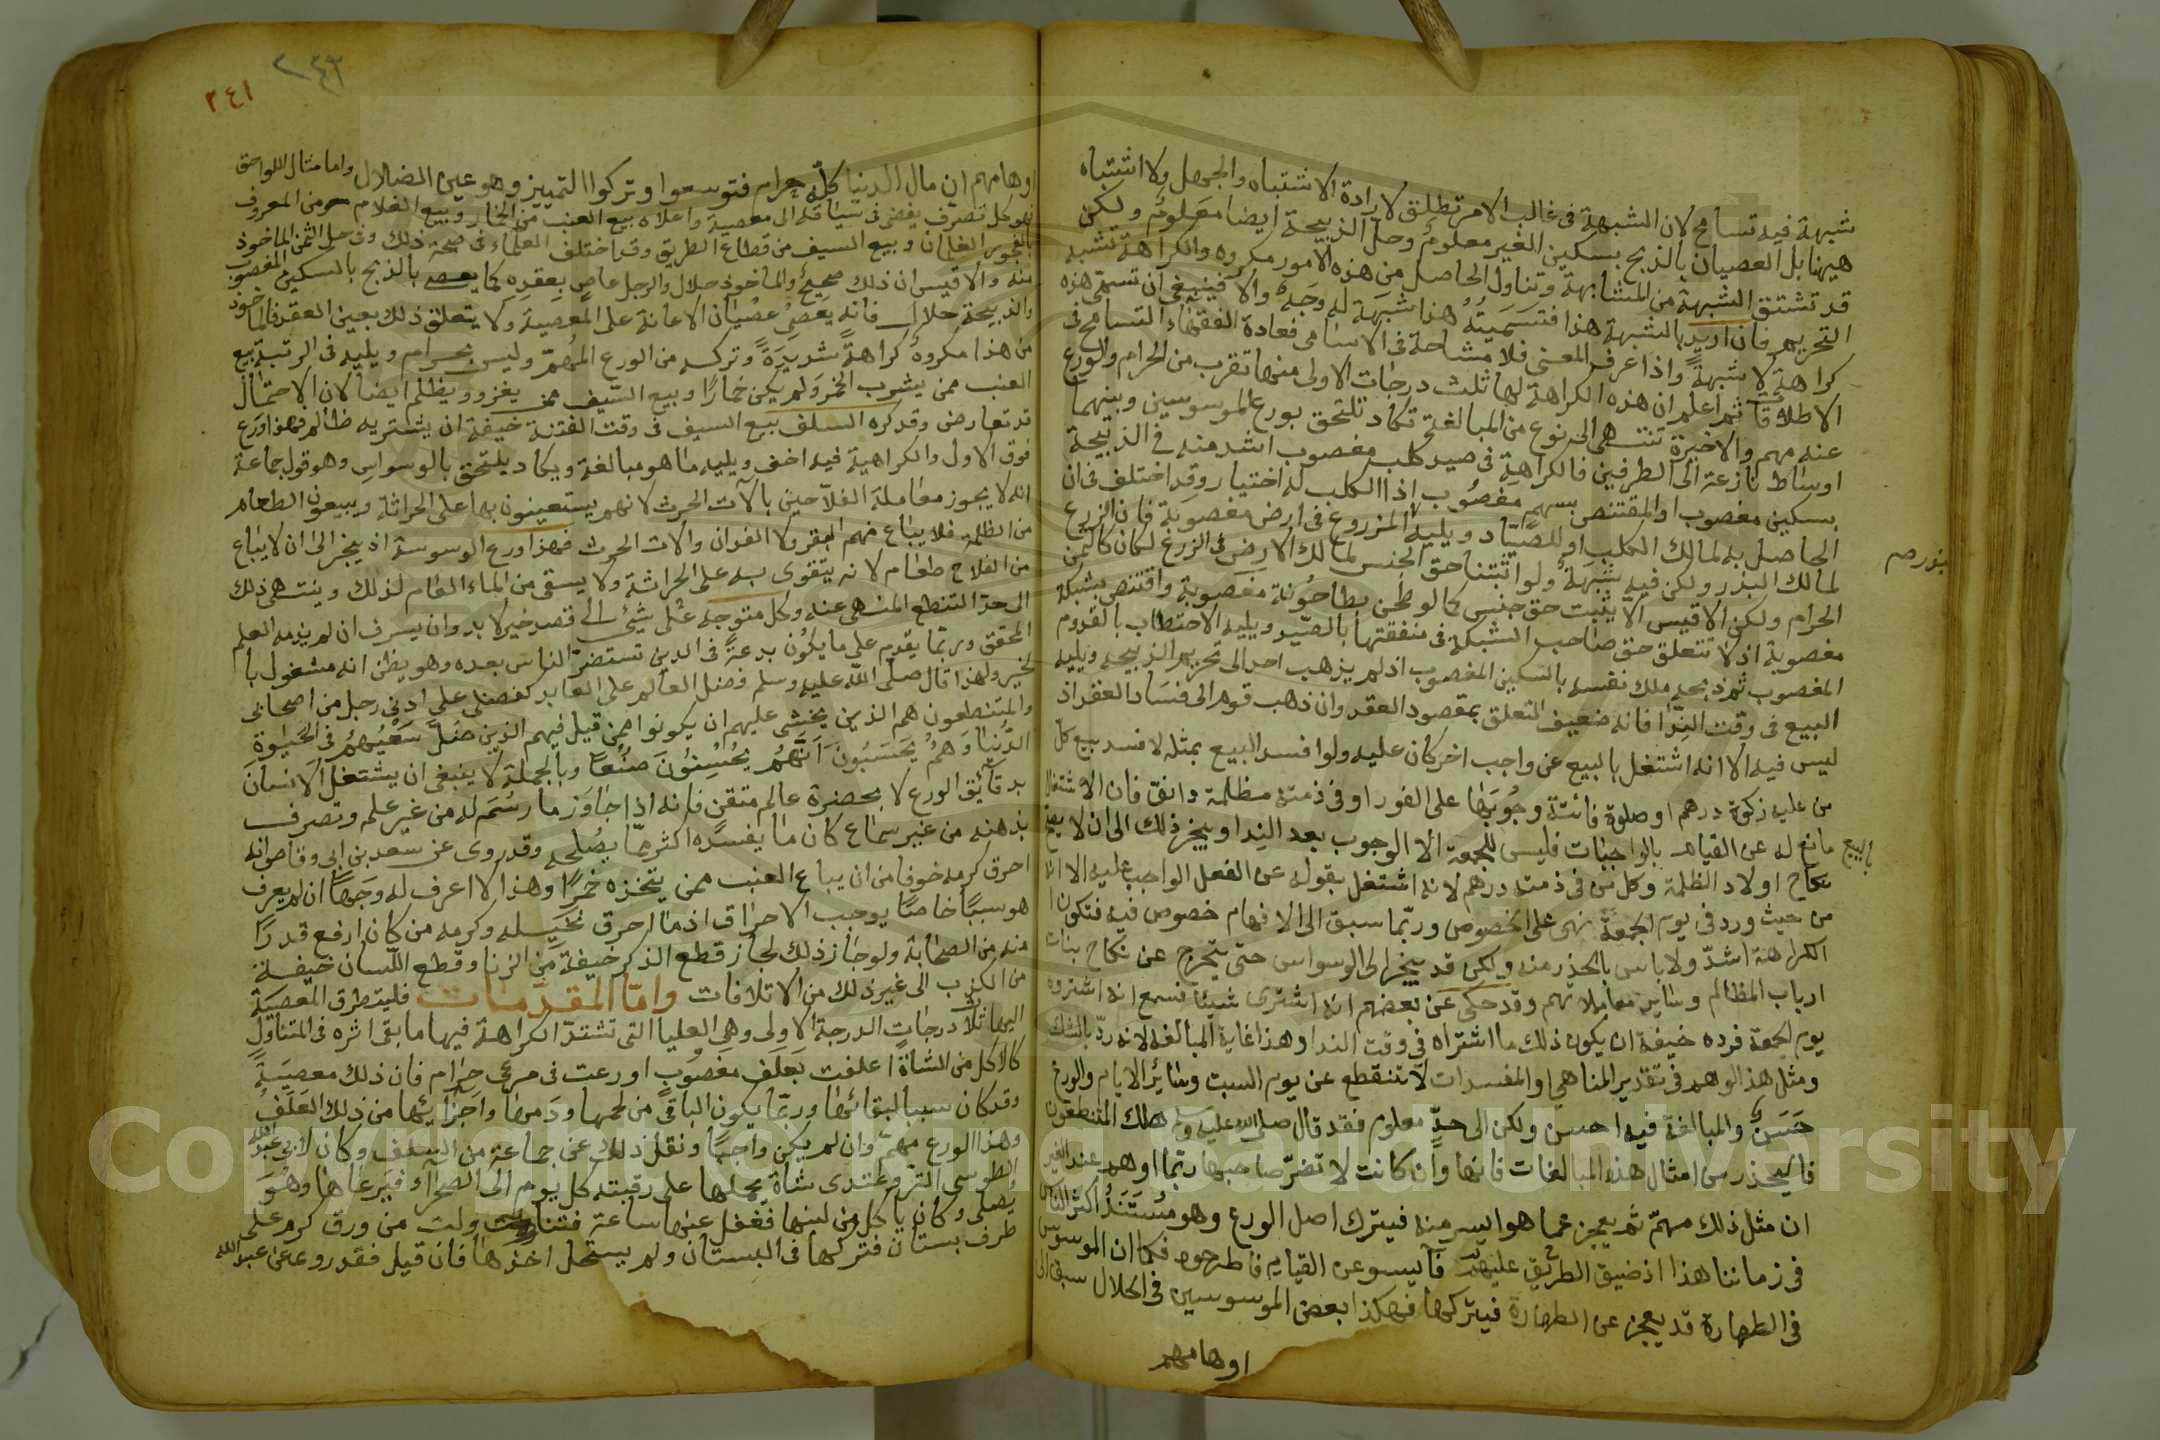 شبهة فيه تسامح لان الشبهة فى غالب الامر تطلق لارادة الاشتباه والجهل ولا اشتباه
هيهنا بل العصيان بالذبح بسكين الغير معلوم وحل الذبيحة ايضا معلوم ولكن
قد تشتق الشبهة من المشابهة وتناول الحاصل من هذه الامور مكروه والكراهة تشبه
التحريم فان اريد بالشبهة هذا فتسميته هذا شبهة له وجه والا فينبغى ان تسمى هذه
كراهة لا شبهة واذا عرف المعنى فلا مشاحة فى الاسامى فعادة الفقهاء التسامح فى
الاطلاقا ثم اعلم ان هذه الكراهة لها ثلث درجات الاولى منها تقرب من الحرام والورع
عنه مهم والاخيرة تنتهى الى نوع من المبالغة تكاد تلتحق بورع الموسوسين وبينهما
اوساط نازعة الى الطرفين فالكراهة فى صيد كلب مغصوب اشد منه فى الذبيحة
بسكين مغصوب او المقتنص بسهم مغصوب اذ الكلب له اختيار وقد اختلف فى ان
الحاصل به لمالك الكلب او للصياد ويليه المزروع فى ارض مغصوبة فان الزرع
لمالك البذر ولكن فيه شبهة ولو اثبتنا حق الحبس لمالك الارض فى الزرع لكان كالثمن
الحرام ولكن الاقيس الا يثبت حق حبس كما لو طحن بطاحونة مغصوبة واقتنص بشبكة
مغصوبة اذ لا تتعلق حق صاحب الشبكة فى منفعتها بالصيد ويليه الاحتطاب بالقدوم
المغصوب ثم ذبحه ملك نفسه بالسكين المغصوب اذ لم يذهب احد الى تحريم الذبيحة ويليه
البيع فى وقت الندا فانه ضعيف التعلق بمقصود العقد وان ذهب قوم الى فساد العقد اذ
ليس فيه الا انه اشتغل بالبيع عن واجب اخر كان عليه ولو افسد البيع بمثله لافسد بيع كل
من عليه زكوة درهم او صلوة فائتة وجوبها على الفور او فى ذمته مظلمة دانق فان الاشتغال
بالبيع
مانع له عن القيام بالواجبات فليس للجمعة الا الوجوب بعد الندا وينجر ذلك الى ان لا يصح
نكاح اولاد الظلمة وكل من فى ذمته درهم لانه اشتغل بقوله عن الفعل الواجب عليه الا انه
من حيث ورد فى يوم الجمعة نهى على الخصوص وربما سبق الى الافهام خصوص فيه فتكون
الكراهة اشد ولا باس بالحذر منه ولكن قد ينجر الى الوسواس حتى يتحرج عن نكاح بنات
ارباب المظالم وساير معاملاتهم وقد حكى عن بعضهم انه اشترى شيئا فسمع انه اشتراه
يوم الجمعة فرده خيفة ان يكون ذلك ما اشتراه فى وقت الندا وهذا غاية المبالغه لانه رد بالشك
ومثل هذا الوهم فى تقدير المناهى او المفسدات لا تنقطع عن يوم السبت وسائر الايام والورع
حسن والمبالغة فيه احسن ولكن الى حد معلوم فقد قال صلى الله عليه وسلم هلك المتنطعون
فاليحذر من امثال هذه المبالغات فانها وان كانت لا تضر صاحبها ربما اوهم عند الغير
ان مثل ذلك مهم ثم يعجز عما هو ايسر منه فيترك اصل الورع وهو مستند اكثر الناس
فى زماننا هذا اذ ضيق الطريق عليهم فآيسو عن القيام فاطرحوه فكما ان الموسوس
فى الطهارة قد يعجز عن الطهارة فيتركها فهكذا بعض الموسوسين فى الحلال سبق الى
اوهامهم
٢٤٣
٢٤١
اوهامهم ان مال الدنيا كله حرام فتوسعوا وتركوا التمييز وهو عين الضلال واما مثال اللواحق
فهو كل تصرف يفضى فى سياقه الى معصية واعلاه بيع العنب من الخمار وبيع الغلام من المعروف
بالفجور بالغلمان وبيع السيف من قطاع الطريق وقد اختلف العلماء فى صحة ذلك وفى حل الثمن الماخوذ
منه والاقيس ان ذلك صحيح والماخوذ حلال والرجل عاص بعقده كما يعصى بالذبح بالسكين المغصوب
والذبيحة حلال فانه يعصى عصيان الاعانة على المعصية ولا يتعلق ذلك بعين العقد فالماخوذ
من هذا مكروه كراهة شديدة وتركه من الورع المهم وليس بحرام ويليه فى الرتبة بيع
العنب ممن يشرب الخمر ولم يكن خمارا وبيع السيف ممن يغزو ويظلم ايضا لان الاحتمال
قد تعارض وقد كره السلف بيع السيف فى وقت الفتنة خيفة ان يشتريه ظالم فهذا ورع
فوق الاول والكراهية فيه اخف ويليه ما هو مبالغة ويكاد يلتحق بالوسواس وهو قول جماعة
انه لا يجوز معاملة الفلاحين بالات الحرث لانهم يستعينون بها على الحراثة ويبيعون الطعام
من الظلمة فلا يباع منهم البقر ولا الفدان والات الحرث فهذا ورع الوسوسة اذ ينجر الى ان لا يباع
من الفلاح طعام لانه يتقوى به على الحراثة ولا يسقى من الماء العام لذلك وينتهى ذلك
الى حد التنطع المنهى عنه وكل متوجه على شىء الى قصد خير لابد وان يسرف ان لم يذمه العلم
المحقق وربما يقدم على ما يكون بدعة فى الدين تستضر الناس بعده وهو يظن انه مشغول با
لخير ولهذا قال صلى الله عليه وسلم فضل العالم على العابد كفضلى على ادنى رجل من اصحابى
والمتنطعون هم الذين يخشى عليهم ان يكونوا ممن قيل فيهم الذين ضل سعيهم فى الحيوة
الدنيا وهم يحسبون انهم يحسنون صنعا وبالجملة لا ينبغى ان يشتغل الانسان
بدقائق الورع لا بحضرة عالم متقن فانه اذا جاوز ما رسم له من غير علم وتصرف
بذهنه من غير سماع كان ما يفسده اكثر مما يصلحه وقد روى عن سعد بن ابى وقاص انه
احرق كرمه خوفا من ان يباع العنب ممن يتخذه خمرا وهذا لا اعرف له وجها ان لم يعرف
هو سببا خاصا يوجب الاحراق اذ ما احرق نخيله وكرمه من كان ارفع قدرا
منه من الصحابة ولو جاز ذلك لجاز قطع الذكر خيفة من الزنا وقطع اللسان خيفة
من الكذب الى غير ذلك من الاتلافات واما المقدمات فليتطرق المعصية
اليها ثلاث درجات الدرجة الاولى وهى العليا التى تشتد الكراهة فيها ما بقى اثره فى المتناول
كالاكل من الشاة اعلفت بعلف مغصوب او رعت فى مرعى حرام فان ذلك معصية
وقد كان سببا لبقائها وربما يكون الباقى من لحمها ودمها واجزائها من ذلك العلف
وهذا الورع مهم وان لم يكن واجبا ونقل ذلك عن جماعة من السلف وكان لابى عبد الله
الطوسى التروغندى شاة يحملها على رقبته كل يوم الى الصحراء فيرعاها وهو
يصلى وكان ياكل من لبنها فغفل عنها ساعة فتناولت من ورق كرم على
طرف بستان فتركها فى البستان ولم يستحل اخذها فان قيل فقد روى عن عبد الله
Copyright © King Saud University